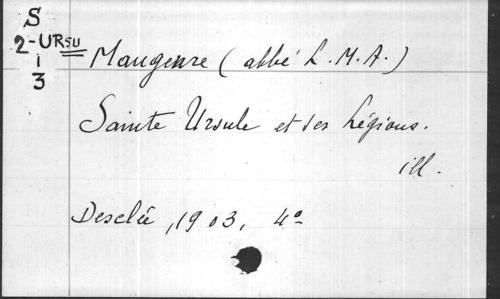 S
2-URSU
1
3
Maugenre (abbé L.M.A.)
Sainte Ursule et ses Légions.
ill.
Desclée, 1903, 4º